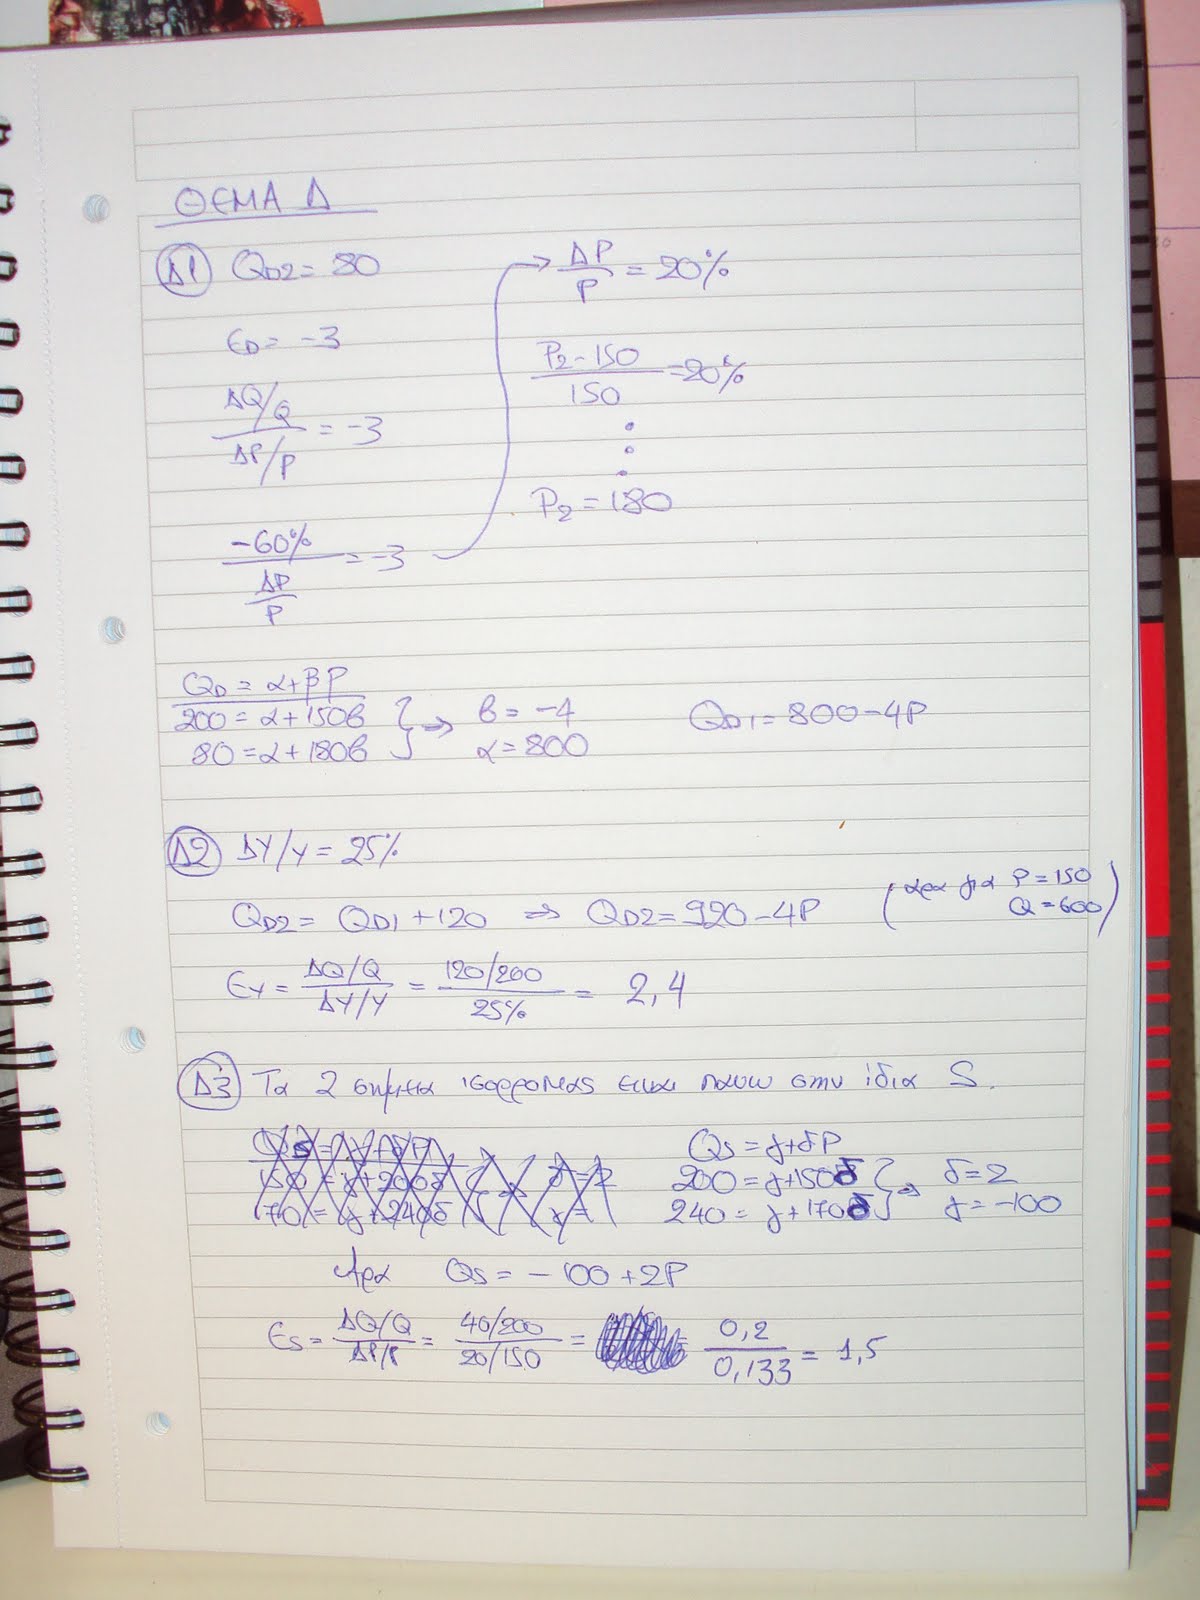 ΘΕΜΑ Δ
Δ1 QD2 = 80
ED = -3
ΔQ/Q / ΔP/P = -3
-60% / ΔP/P = -3
→ ΔP/P = 20%
P2-150 / 150 = 20%
P2 = 180
QD = α+βP
200 = α+150β
80 = α+180β } ⇒ β = -4
α = 800
QD1 = 800-4P
Δ2 ΔY/Y = 25%
QD2 = QD1 + 120 ⇒ QD2 = 920-4P (αρα για P = 150
Q = 600)
EY = ΔQ/Q / ΔY/Y = 120/200 / 25% = 2,4
Δ3 Τα 2 σημεια ισορροπιας ειναι πανω στην ίδια S.
QS = γ+δP
200 = γ+150δ
240 = γ+170δ } ⇒ δ = 2
γ = -100
Αρα QS = -100+2P
ES = ΔQ/Q / ΔP/P = 40/200 / 20/150 = 0,2 / 0,133 = 1,5